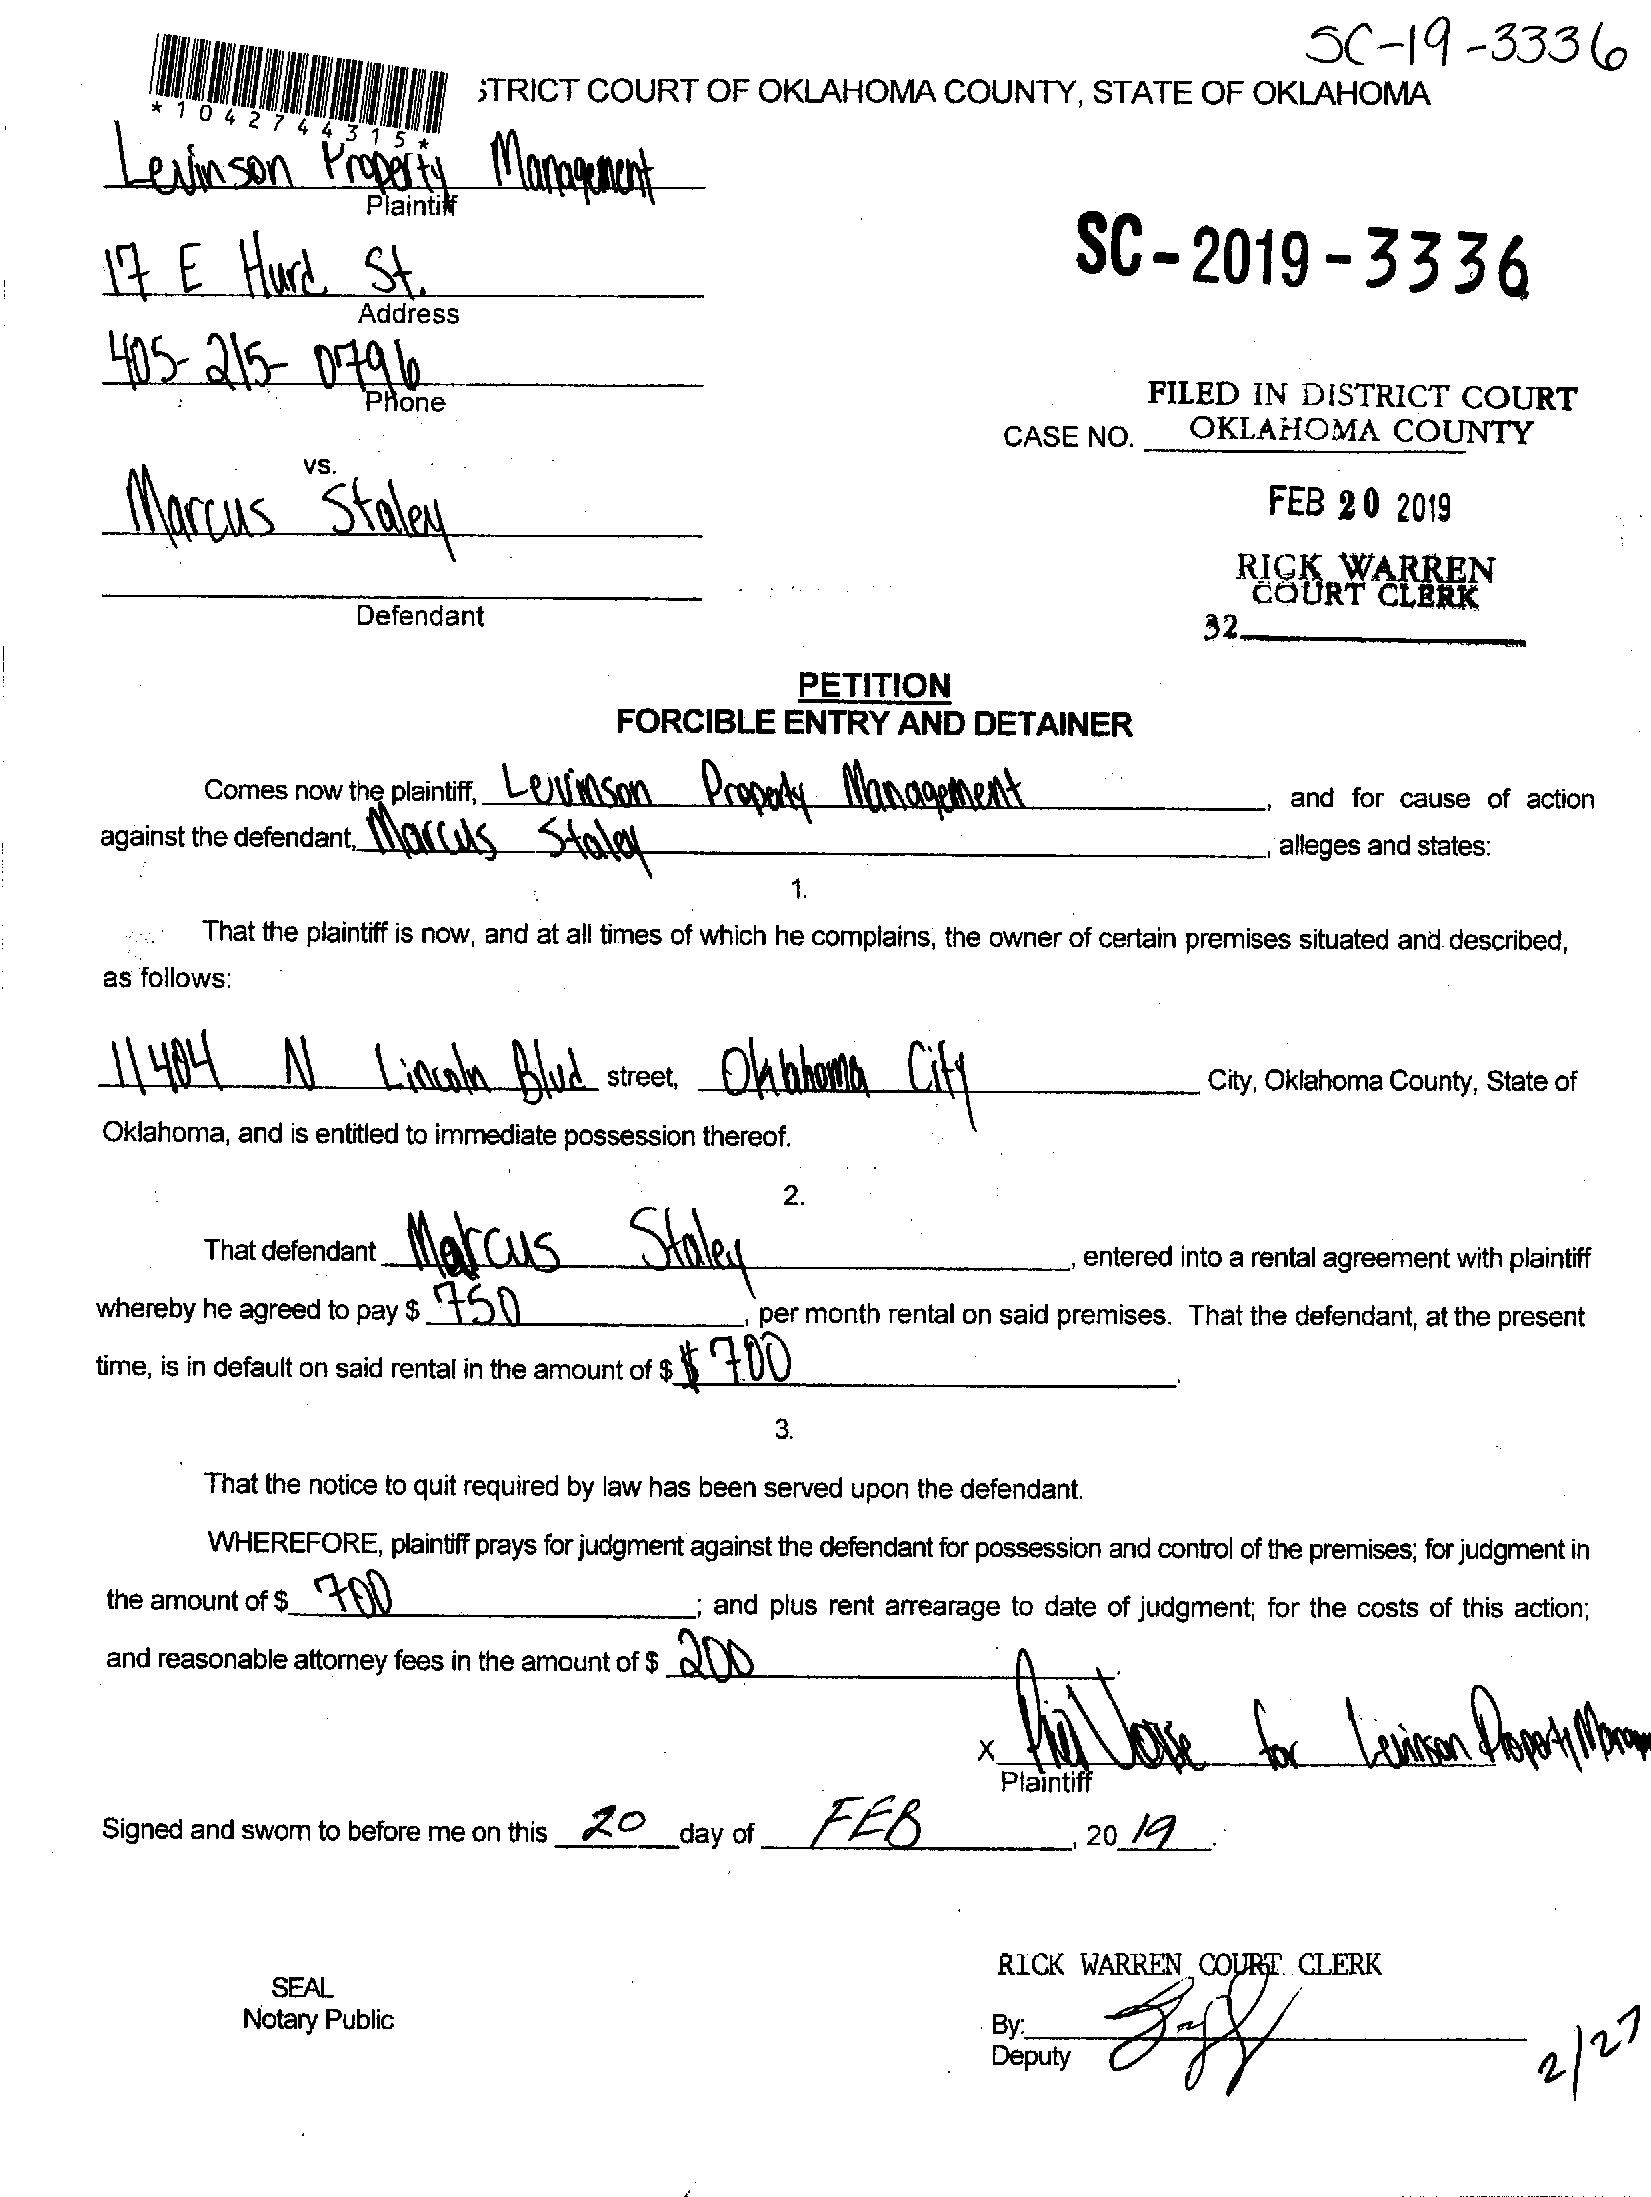 SC-19-3336
*1042744315*
STRICT COURT OF OKLAHOMA COUNTY, STATE OF OKLAHOMA
Levinson Property Management
Plaintiff
17 E Hurd St.
Address
SC-2019-3336
405-215-0796
Phone
FILED IN DISTRICT COURT
CASE NO. OKLAHOMA COUNTY
vs.
Marcus Staley
FEB 20 2019
RICK WARREN
COURT CLERK
Defendant
32
PETITION
FORCIBLE ENTRY AND DETAINER
Comes now the plaintiff, Levinson Property Management, and for cause of action
against the defendant, Marcus Staley, alleges and states:
1.
That the plaintiff is now, and at all times of which he complains, the owner of certain premises situated and described,
as follows:
11404 N Lincoln Blvd street, Oklahoma City City, Oklahoma County, State of
Oklahoma, and is entitled to immediate possession thereof.
2.
That defendant Marcus Staley, entered into a rental agreement with plaintiff
whereby he agreed to pay $ 750, per month rental on said premises. That the defendant, at the present
time, is in default on said rental in the amount of $ $700.
3.
That the notice to quit required by law has been served upon the defendant.
WHEREFORE, plaintiff prays for judgment against the defendant for possession and control of the premises; for judgment in
the amount of $ 700; and plus rent arrearage to date of judgment; for the costs of this action;
and reasonable attorney fees in the amount of $ 200.
X for Levinson Property
Plaintiff
Signed and sworn to before me on this 20 day of FEB, 20 19.
RICK WARREN COURT CLERK
SEAL
Notary Public
By:
Deputy
2/27